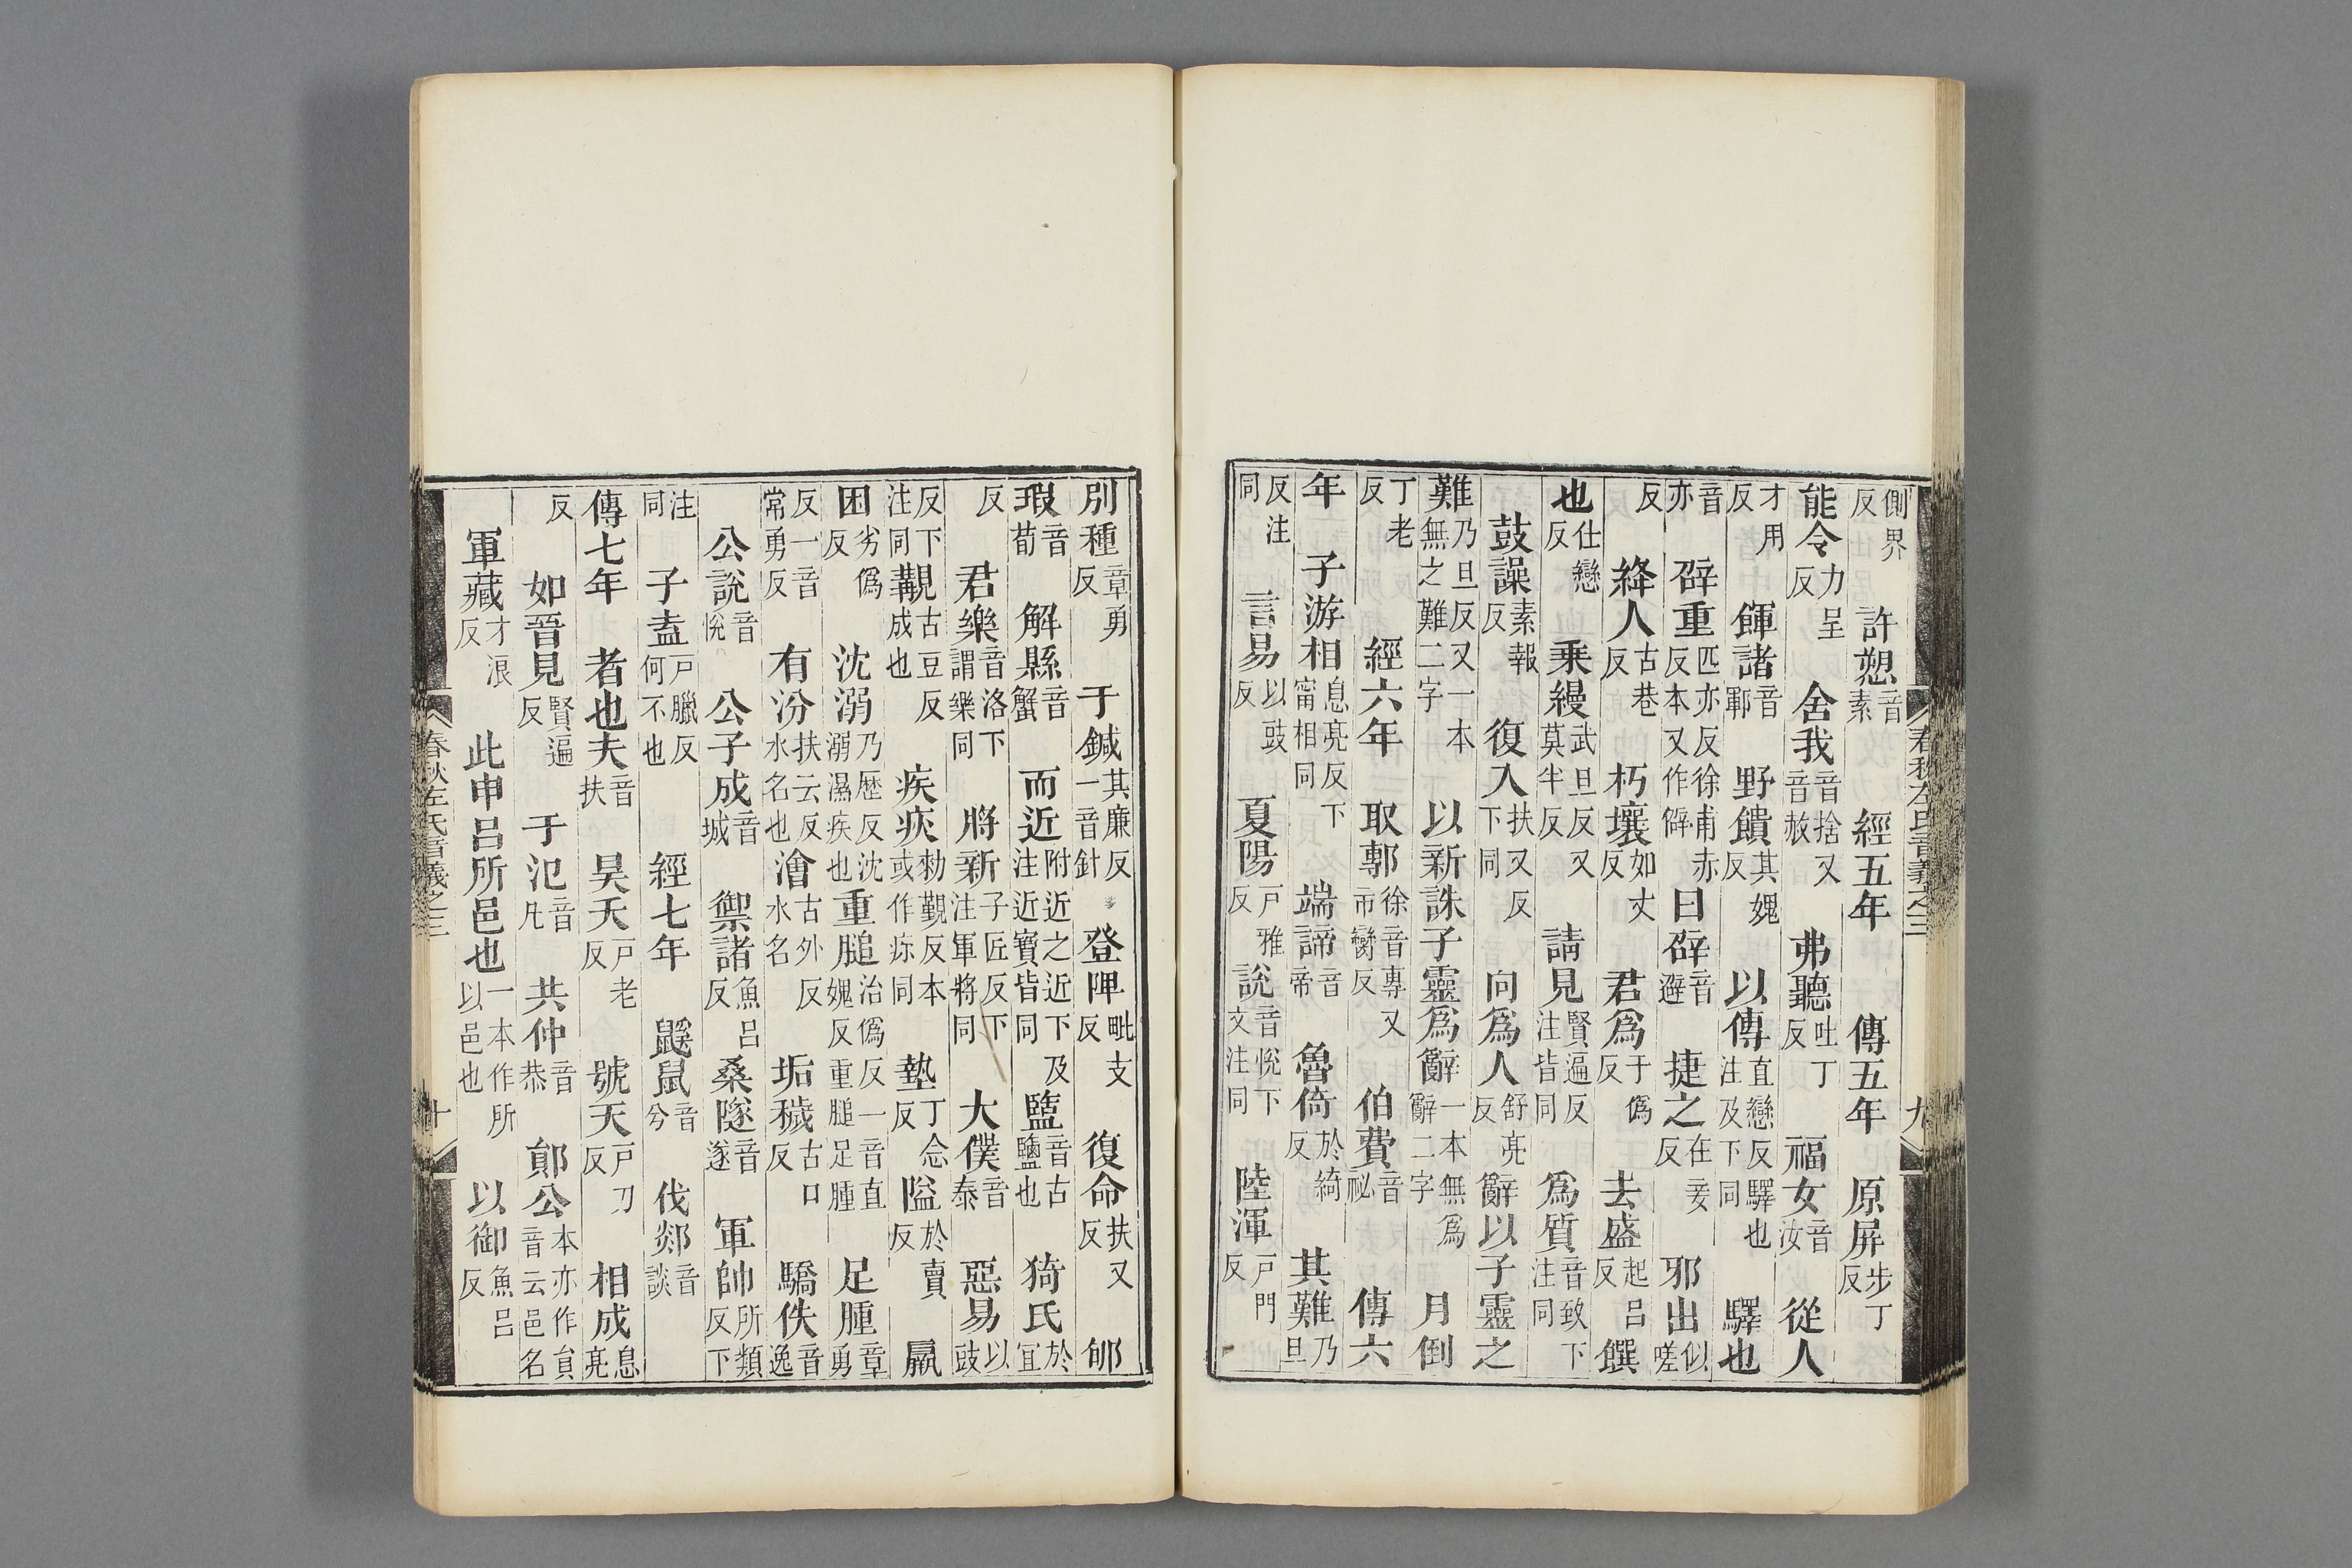 春秋左氏音義之三 九
側界反 許愬音素 經五年 傳五年 原屏步丁反
能令力呈反 舍我音捨又音赦 弗聽吐丁反 福女音汝 從人
才用反 餫諸音鄆 野饋其媿反 以傳直戀反驛也注及下同 驛也
音亦 辟重匹亦反徐甫赤反本又作僻 曰辟音避 捷之在妾反 邪出似嗟
反 絳人古巷反 朽壤如丈反 君爲于僞反 去盛起呂反 饌
也仕戀反 乘縵武旦反又莫半反 請見賢遍反注皆同 爲質音致下注同
鼓譟素報反 復入扶又反下同 向爲人舒亮反 辭以子靈之
難乃旦反又一本無之難二字 以新誅子靈爲辭一本無爲辭二字 月倒
丁老反 經六年 取鄟徐音專又市臠反 伯費音祕 傳六
年 子游相息亮反下甯相同 端諦音帝 魯倚於綺反 其難乃旦
反注同 言易以豉反 夏陽戶雅反 說音悅下文注同 陸渾戶門反
別種章勇反 于鍼其廉反一音針 登陴毗支反 復命扶又反 郇
瑕音荀 解縣音蟹 而近附近之近下及注近寶皆同 盬音古鹽也 猗氏於宜
反 君樂音洛下謂樂同 將新子匠反下注軍將同 大僕音泰 惡易以豉
反下注同 覯古豆反成也 疾疢勑覲反本或作疹同 墊丁念反 隘於賣反 羸
困劣僞反 沈溺乃歷反沈溺濕疾也 重膇治僞反一音直媿反重膇足腫 足腫章勇
反一音常勇反 有汾扶云反水名也 澮古外反水名 垢穢古口反 驕佚音逸
公說音悅 公子成音城 禦諸魚呂反 桑隧音遂 軍帥所類反下
注同 子盍戶臘反何不也 經七年 鼷鼠音兮 伐郯音談
傳七年 者也夫音扶 昊天戶老反 號天戶刀反 相成息亮
反 如晉見賢遍反 于氾音凡 共仲音恭 鄖公本亦作員音云邑名
軍藏才浪反 此申呂所邑也一本作所以邑也 以御魚呂反
春秋左氏音義之三 十